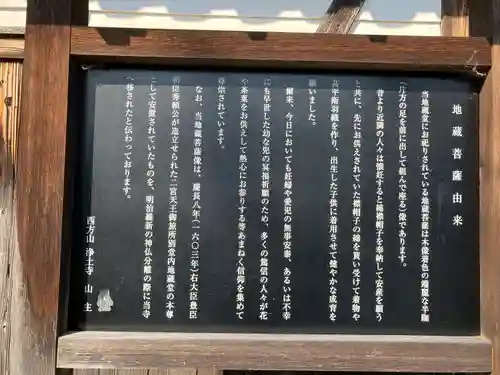 地蔵菩薩由来
当地蔵堂にお祀りされている地蔵菩薩は木像着色の端麗な半跏
(片方の足を前に出して組んで座る)像であります。
昔より近隣の人々は懐妊すると綿襟帽子を奉納して安産を願う
と共に、先にお供えされていた襟帽子の綿を買い受けて着物や
甚平衛羽織を作り、出生した子供に着用させて健やかな成育を
願いました。
爾来、今日においても妊婦や愛児の無事安泰、あるいは不幸
にも早世した幼な児の冥福祈願のため、多くの篤信の人々が花
や茶菓をお供えして熱心にお参りする等あまねく信仰を集めて
尊崇されています。
なお、当地蔵菩薩像は、慶長八年(一六〇三年)右大臣豊臣
朝臣秀頼公が造立せられた二宮天王御旅所別堂内地蔵堂の本尊
として安置されていたものを、明治維新の神仏分離の際に当寺
へ移されたと伝わっております。
西方山 浄土寺 山主